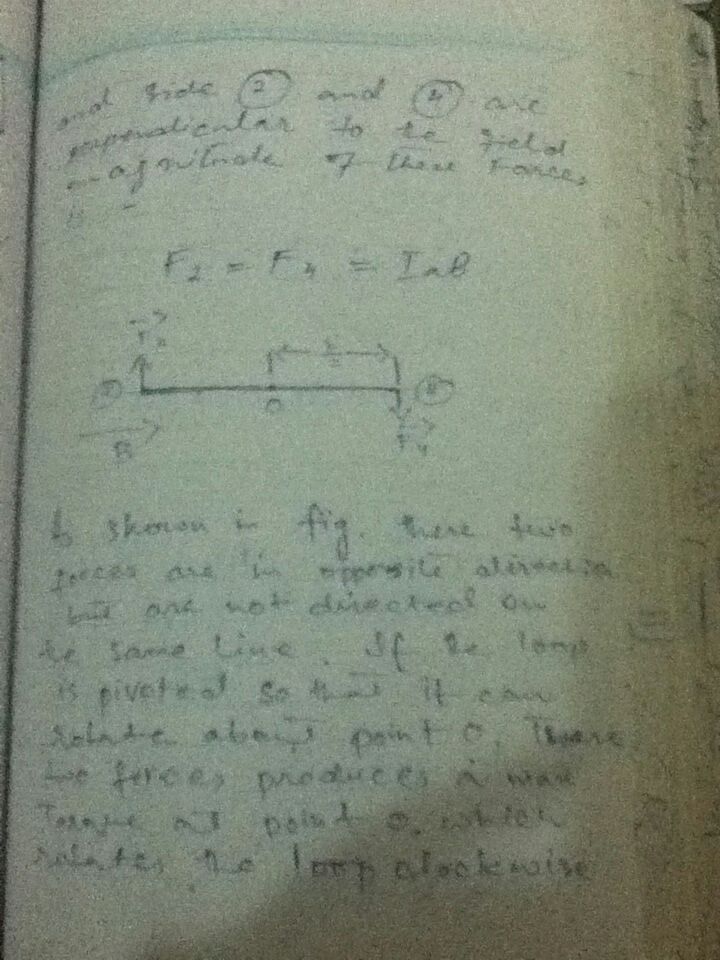 and side ② and ④ are
perpendicular to te field
magnitude of these Forces
F₂ = F₄ = IaB
O
B
F₄
As shown in fig. these two
forces are in opposite direction
but are not directed on
te same line. If te loop
is pivoted so that it can
rotate about point O, These
two forces produces a max
Torque at point O, which
rotates the loop clockwise